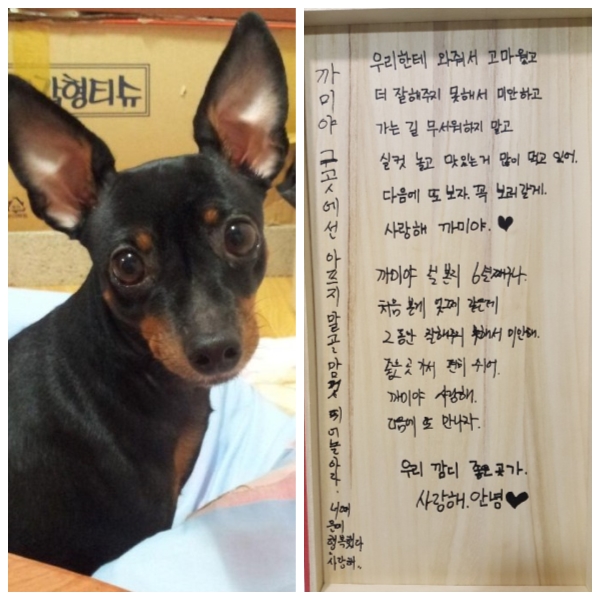 형티슈
까미야 그곳에선 아프지 말고 맘껏 뛰어놀아라.
너때문에
행복했다
사랑해..
우리한테 와줘서 고마웠고
더 잘해주지 못해서 미안하고
가는 길 무서워하지 말고
실컷 놀고 맛있는거 많이 먹고 있어.
다음에 또 보자. 꼭 보러갈게.
사랑해 까미야. ♥
까미야 널 본지 6년째구나.
처음 본게 엊그제 같은데
그동안 잘해주지 못해서 미안해.
좋은 곳 가서 편히 쉬어.
까미야 사랑해.
다음에 또 만나자.
우리 깜디 좋은곳가.
사랑해. 안녕♥